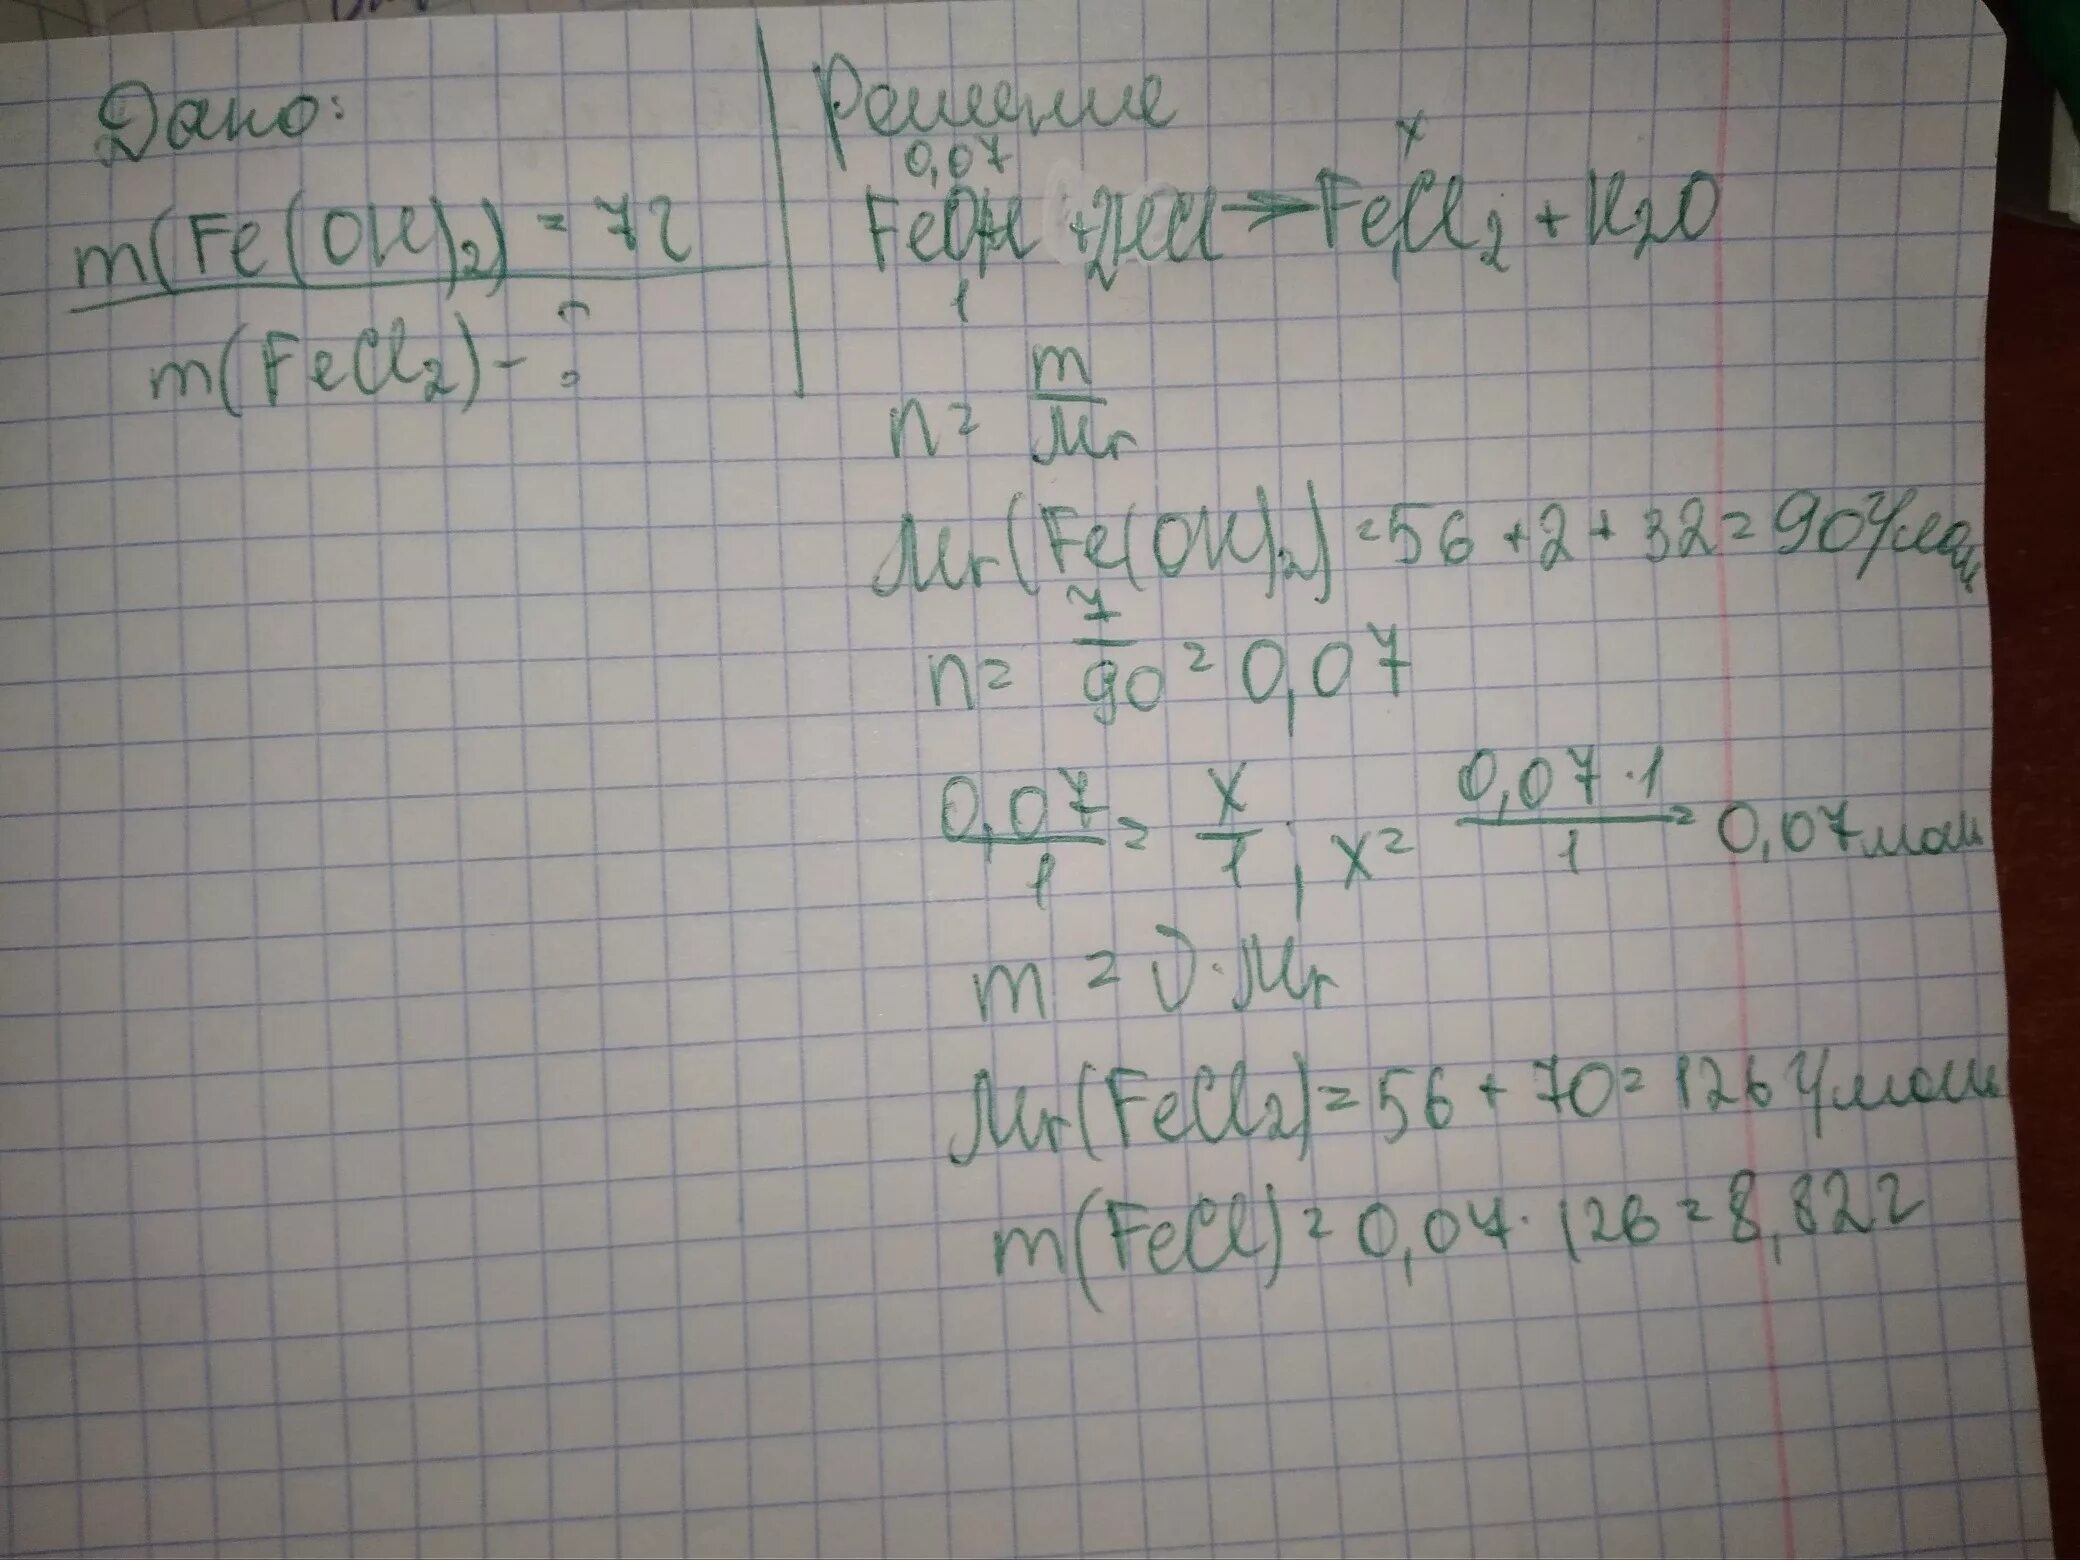 Дано:
m(Fe(OH)2) = 7г
m(FeCl2) - ?
Решение
0,07 x
FeOH +2HCl → FeCl2 + H2O
1
n = m/Mr
Mr(Fe(OH)2) = 56 + 2 + 32 = 90 г/моль
n = 7/90 = 0,07
0,07/1 = x/1 ; x = 0,07·1/1 = 0,07 моль
m = ν·Mr
Mr(FeCl2) = 56 + 70 = 126 г/моль
m(FeCl) = 0,07·126 = 8,82г